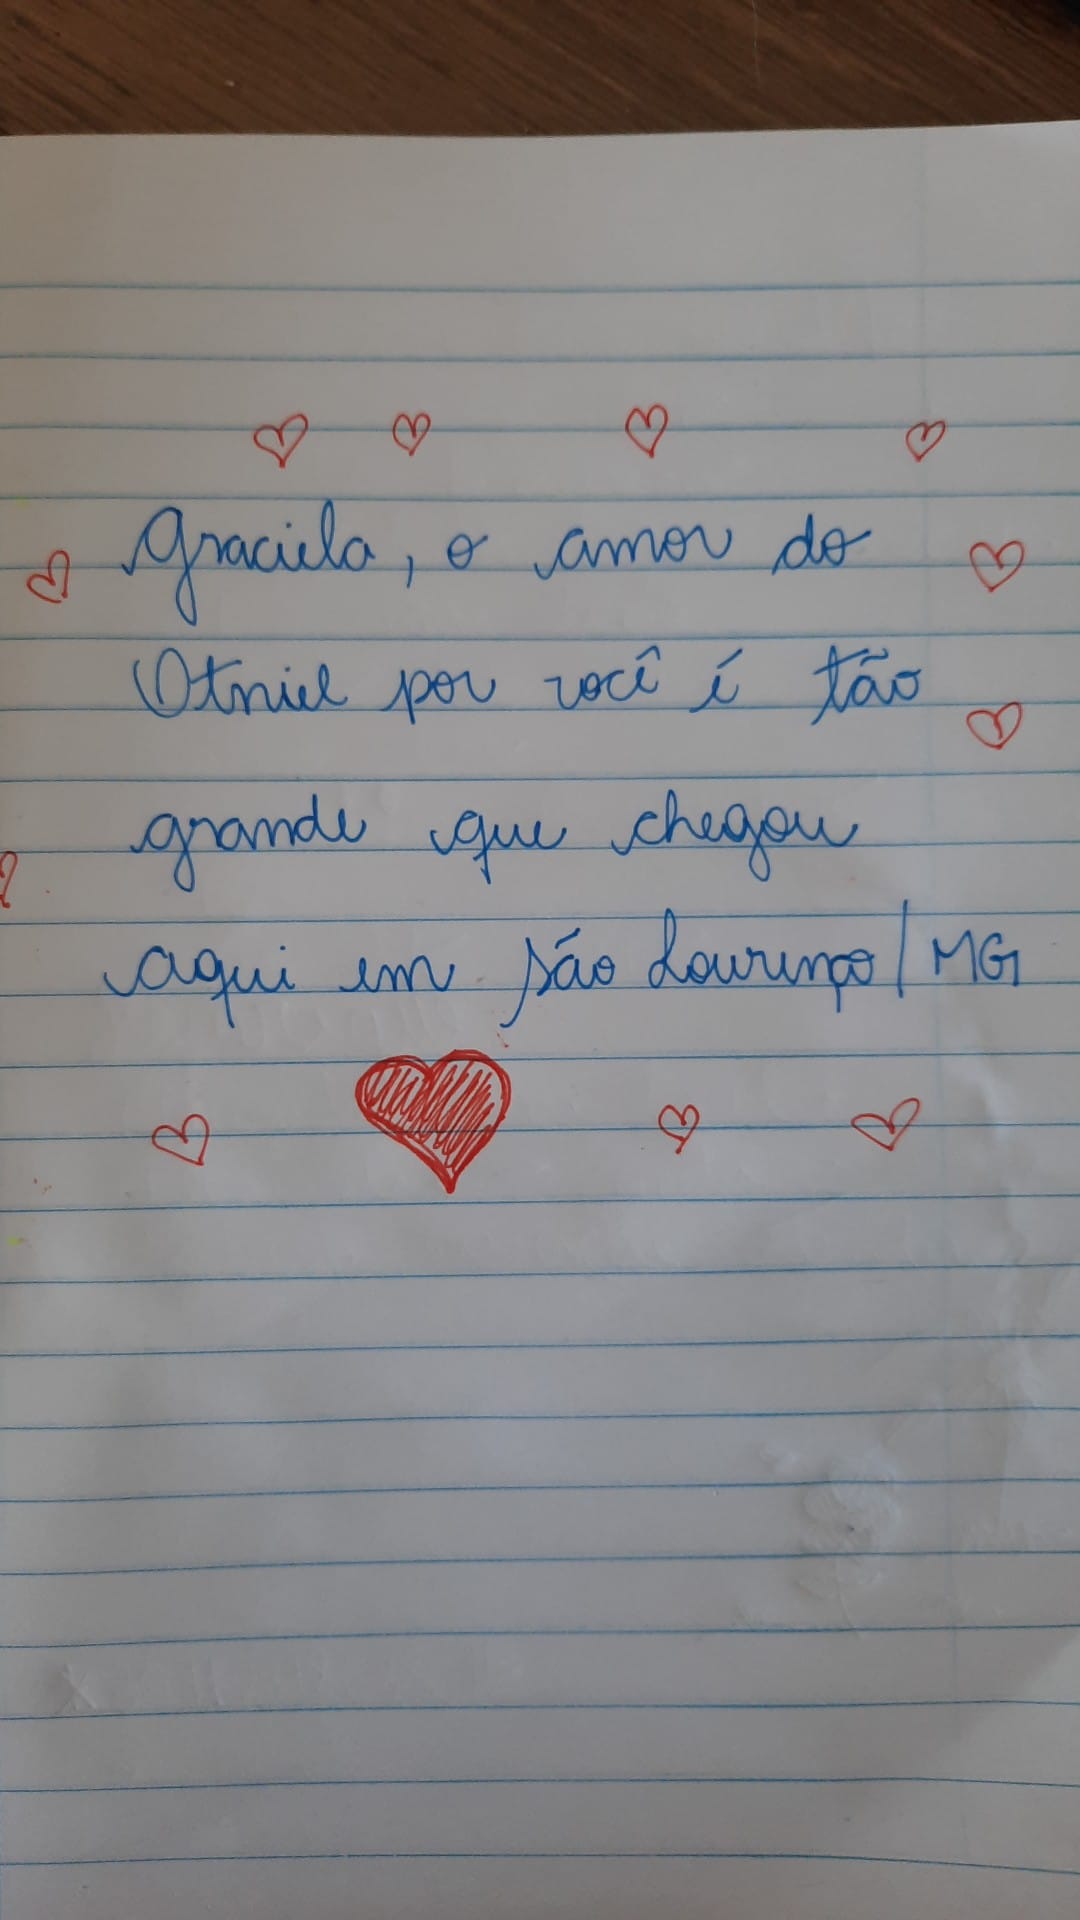 Graciela, o amor do
Otniel por você é tão
grande que chegou
aqui em São Lourenço/MG